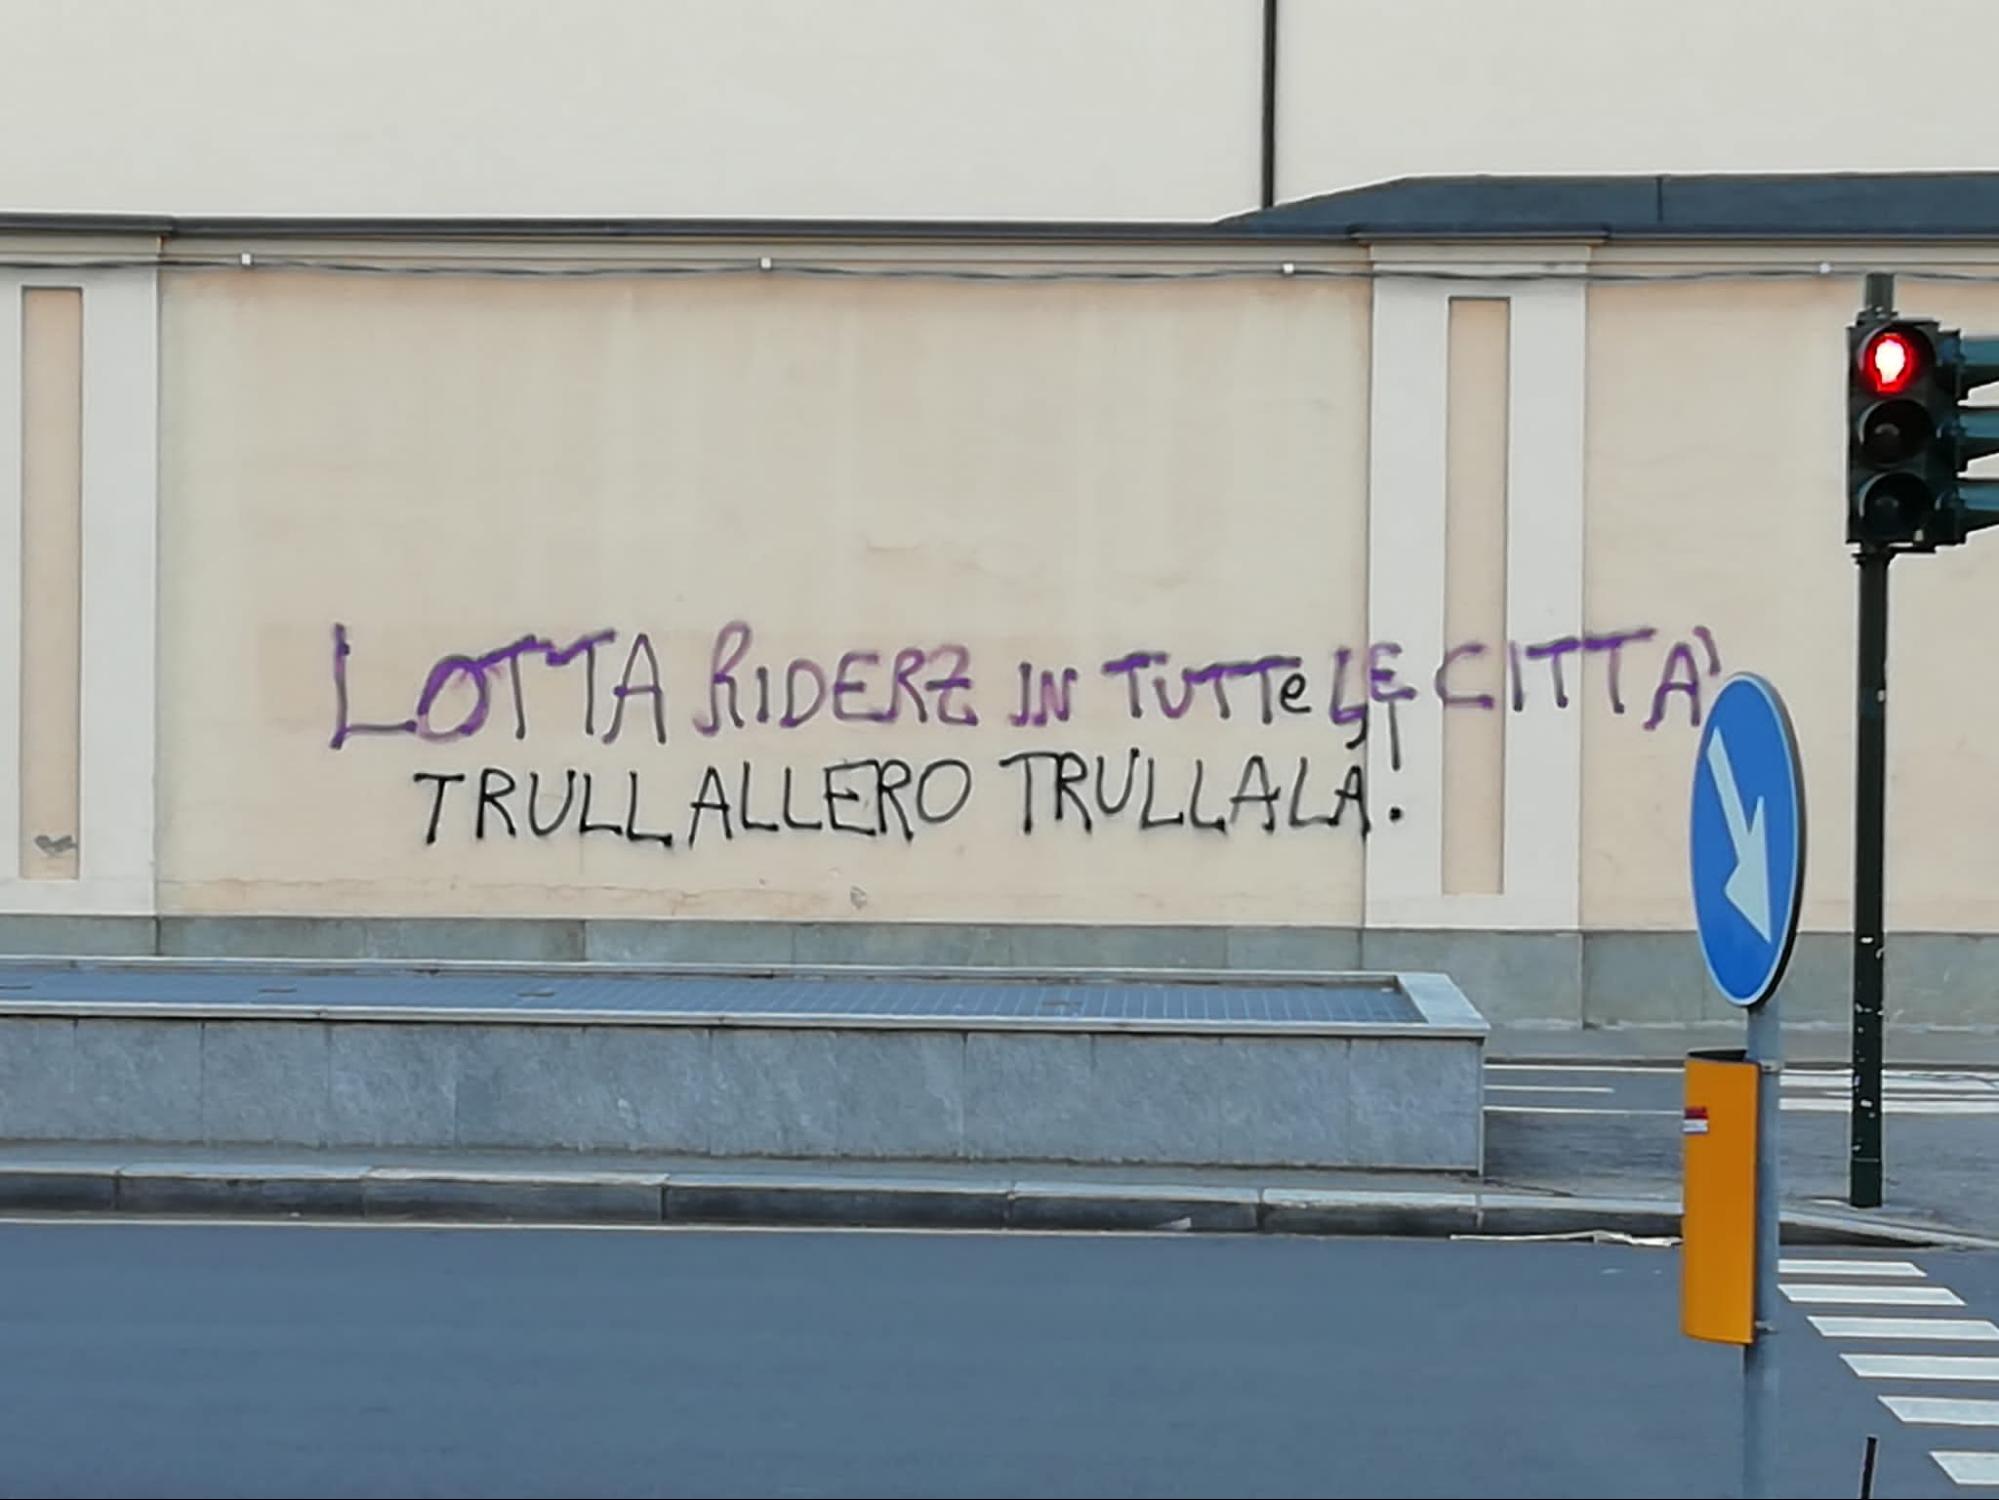 LOTTA RIDERZ IN TUTTe LE CITTA'
TRULLALLERO TRULLALA'!